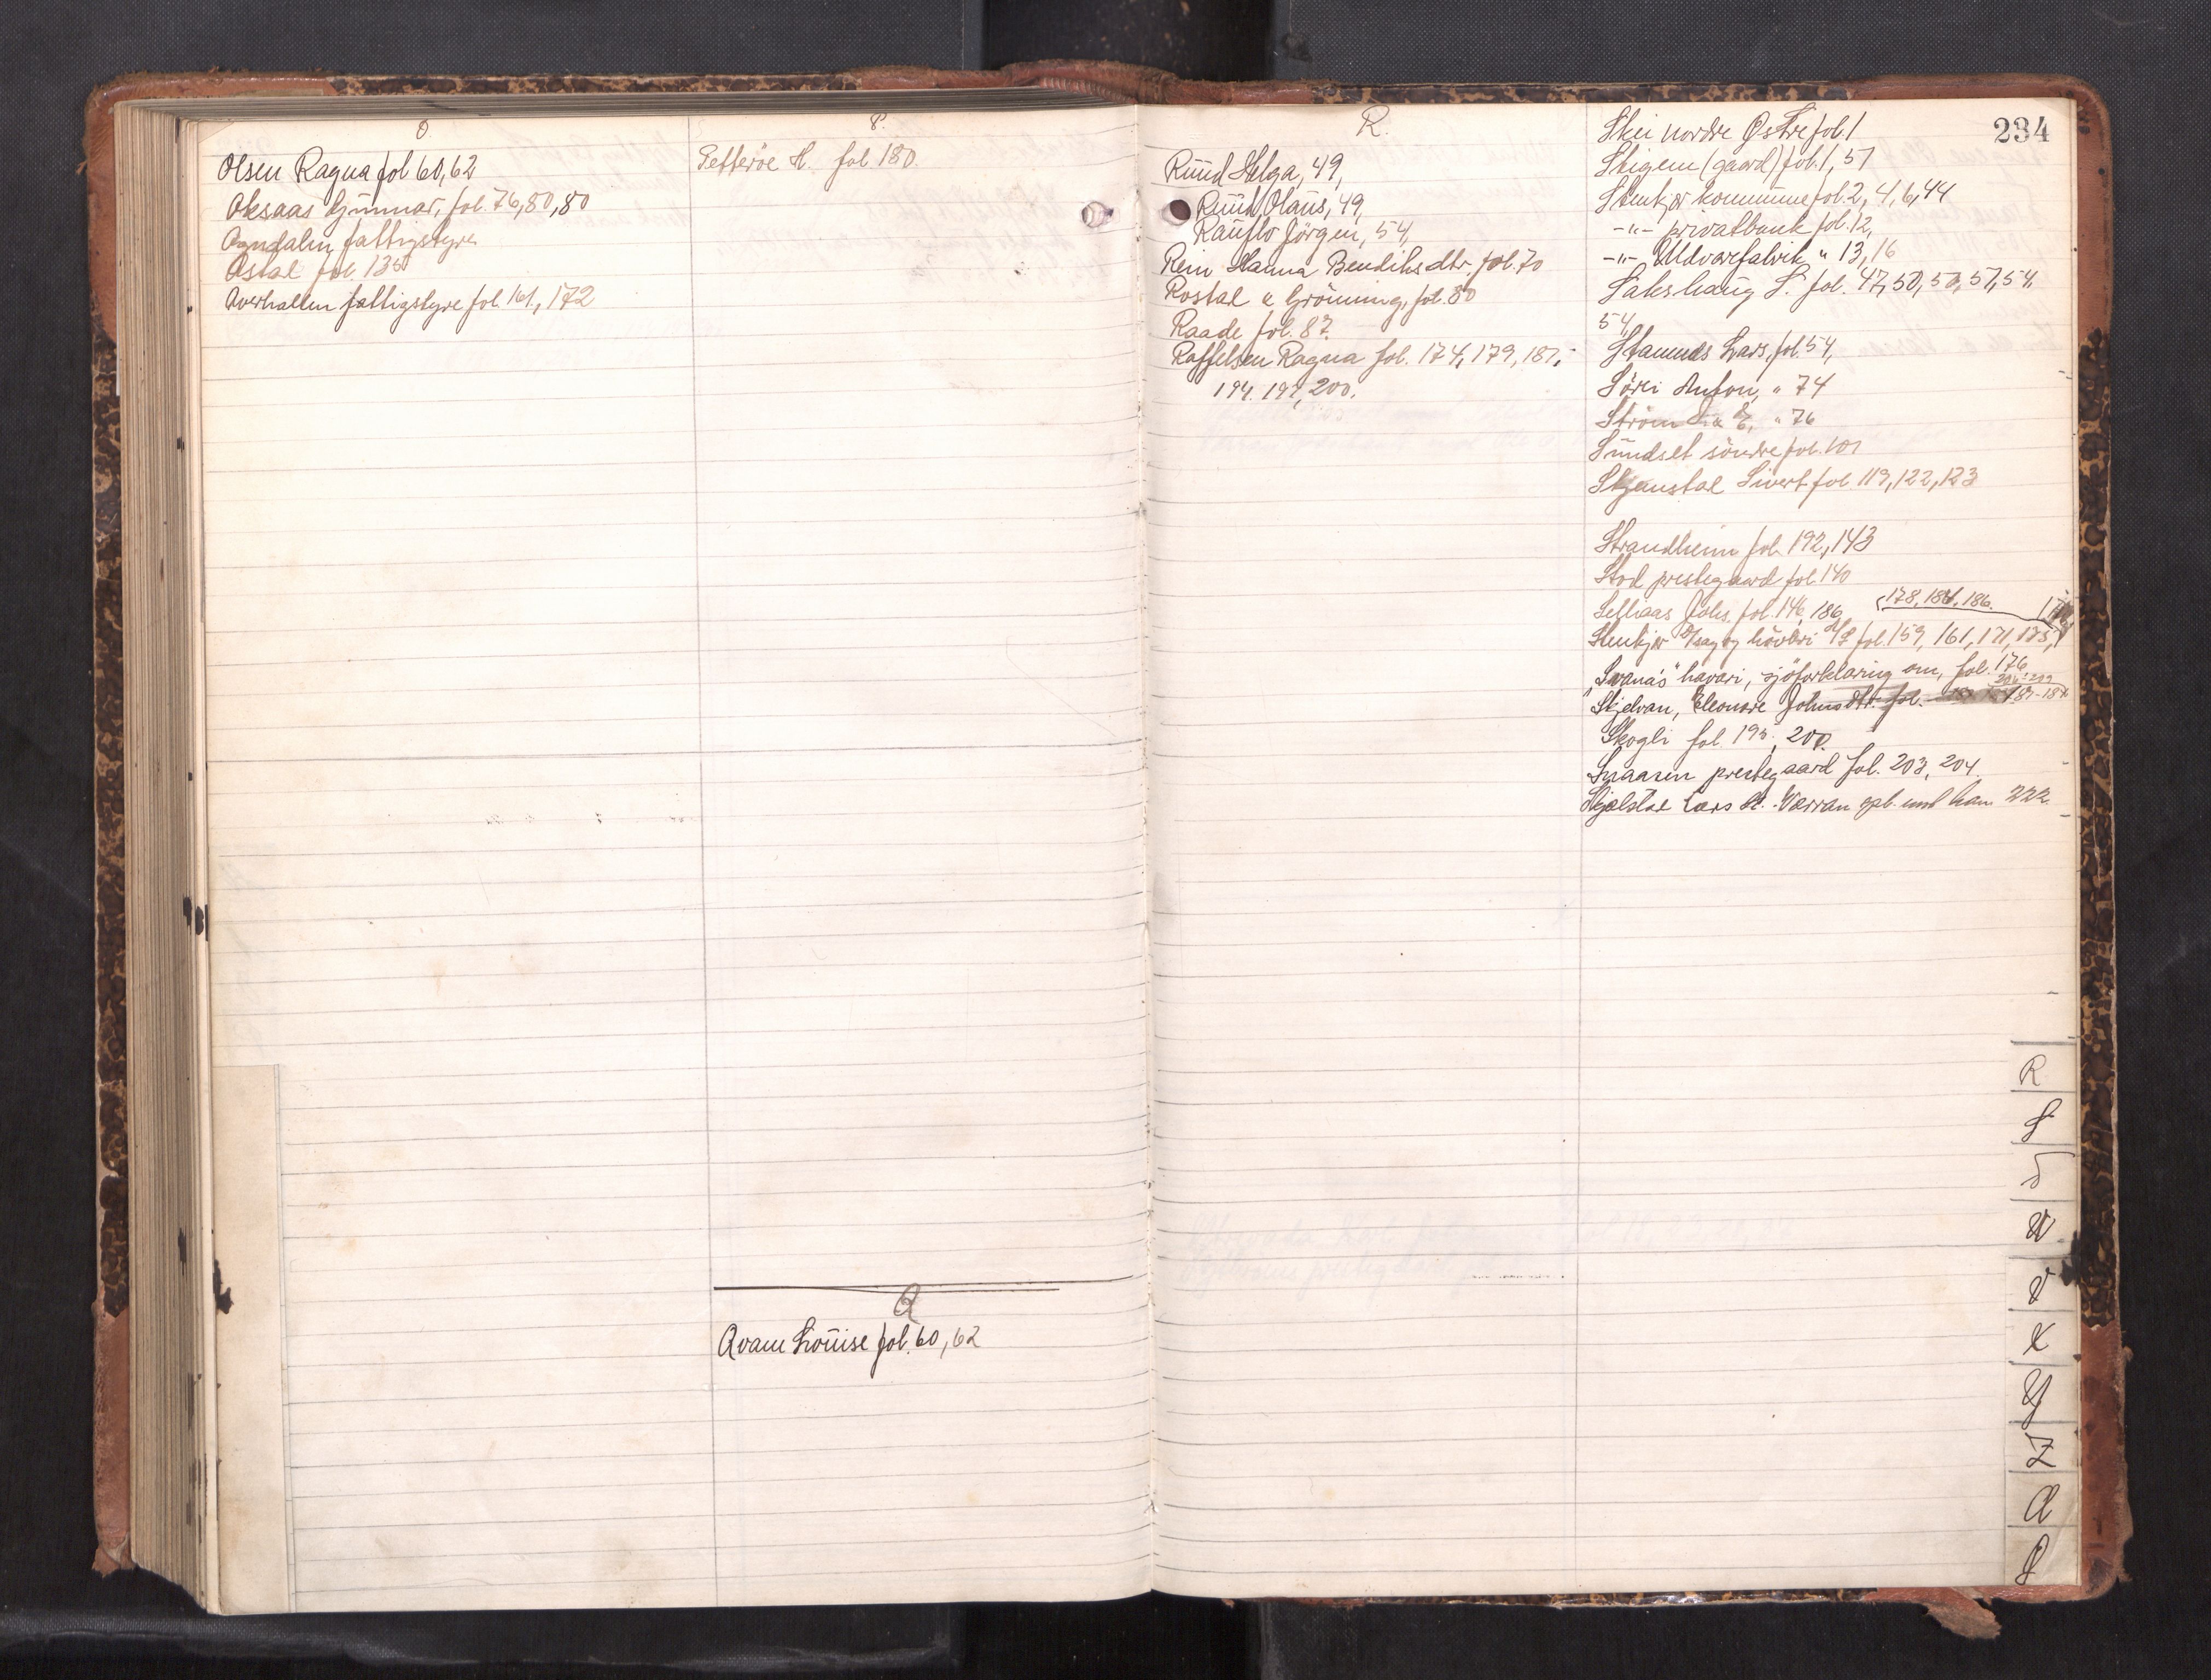 O.
Olsen Ragna fol 60, 62
Oksaas Gunnar, fol. 76, 80, 80
Ogndalen fattigstyre
Ostal fol 135
Overhallen fattigstyre fol. 161, 172
P.
Petteröe H. fol 180.
Q
Qvam Louise fol. 60, 62
R.
Ruud Helga, 49,
Ruud Olaus, 49,
Rauflo Jörgen, 54,
Rein Hanna Bendiksdtr. fol. 70
Rostal & Grönning, fol. 80
Raade fol. 87.
Roffelsen Ragna fol. 174, 179, 181,
194. 197, 200.
234
Skei nordre Østre fol. 1
Skigem (gaard) fol. 1, 51
Stenkjær kommune fol. 2, 4, 6, 44
-"- privatbank fol. 12,
-"- Uldvarefabrik " 13, 16
Sakshaug S. fol. 47, 50, 50, 51, 54,
54,
Stamnes Lars, fol. 54,
Sörei Anton, " 74
Ström " 76
Sundset söndre fol. 101
Stjenstal Sivert fol. 119, 122, 123
Strandheim fol. 192, 143
Stod prestegaard fol. 140
Selliaas Johs. fol. 146, 186
178, 181, 186.
Stenkjær sag og høvleri A/S fol. 159, 161, 171, 175,
"Svanås" havari, sjöforklaring om, fol. 176
Skjelvan, Eleonore Johnsdtr. fol. 183-184
Skogli fol. 195, 200.
Snaasen prestegaard fol. 203, 204.
Skjelstad Lars H. Værran gpb. mod ham 222.
R
S
T
U
V
X
Y
Z
Æ
Ø